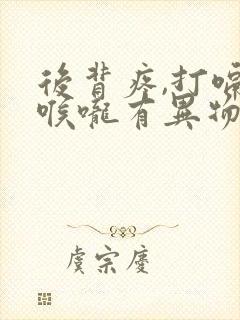 後背疼,打嗝
喉嚨有異物
虞宗慶